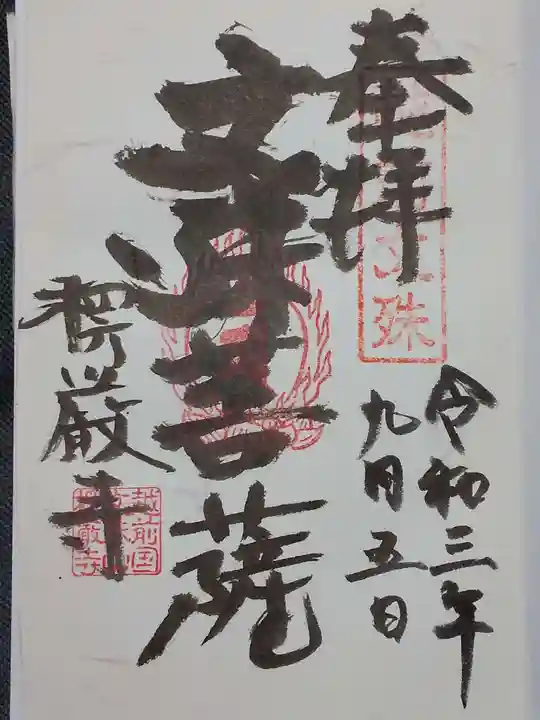 奉拝
文殊
令和三年
九月五日
文殊菩薩
楞厳寺
越前国
楞厳寺